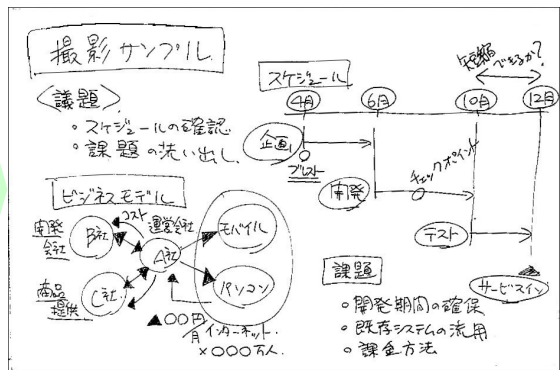 撮影サンプル
<議題>
・スケジュールの確認
・課題の洗い出し
ビジネスモデル
開発会社
B社
コスト
運営会社
A社
モバイル
パソコン
商品提供
C社
▲〇〇円/月
インターネット
×〇〇〇万人
スケジュール
短縮できるか?
4月
6月
10月
12月
企画
ブレスト
開発
チェックポイント
テスト
サービスイン
課題
・開発期間の確保
・既存システムの流用
・課金方法